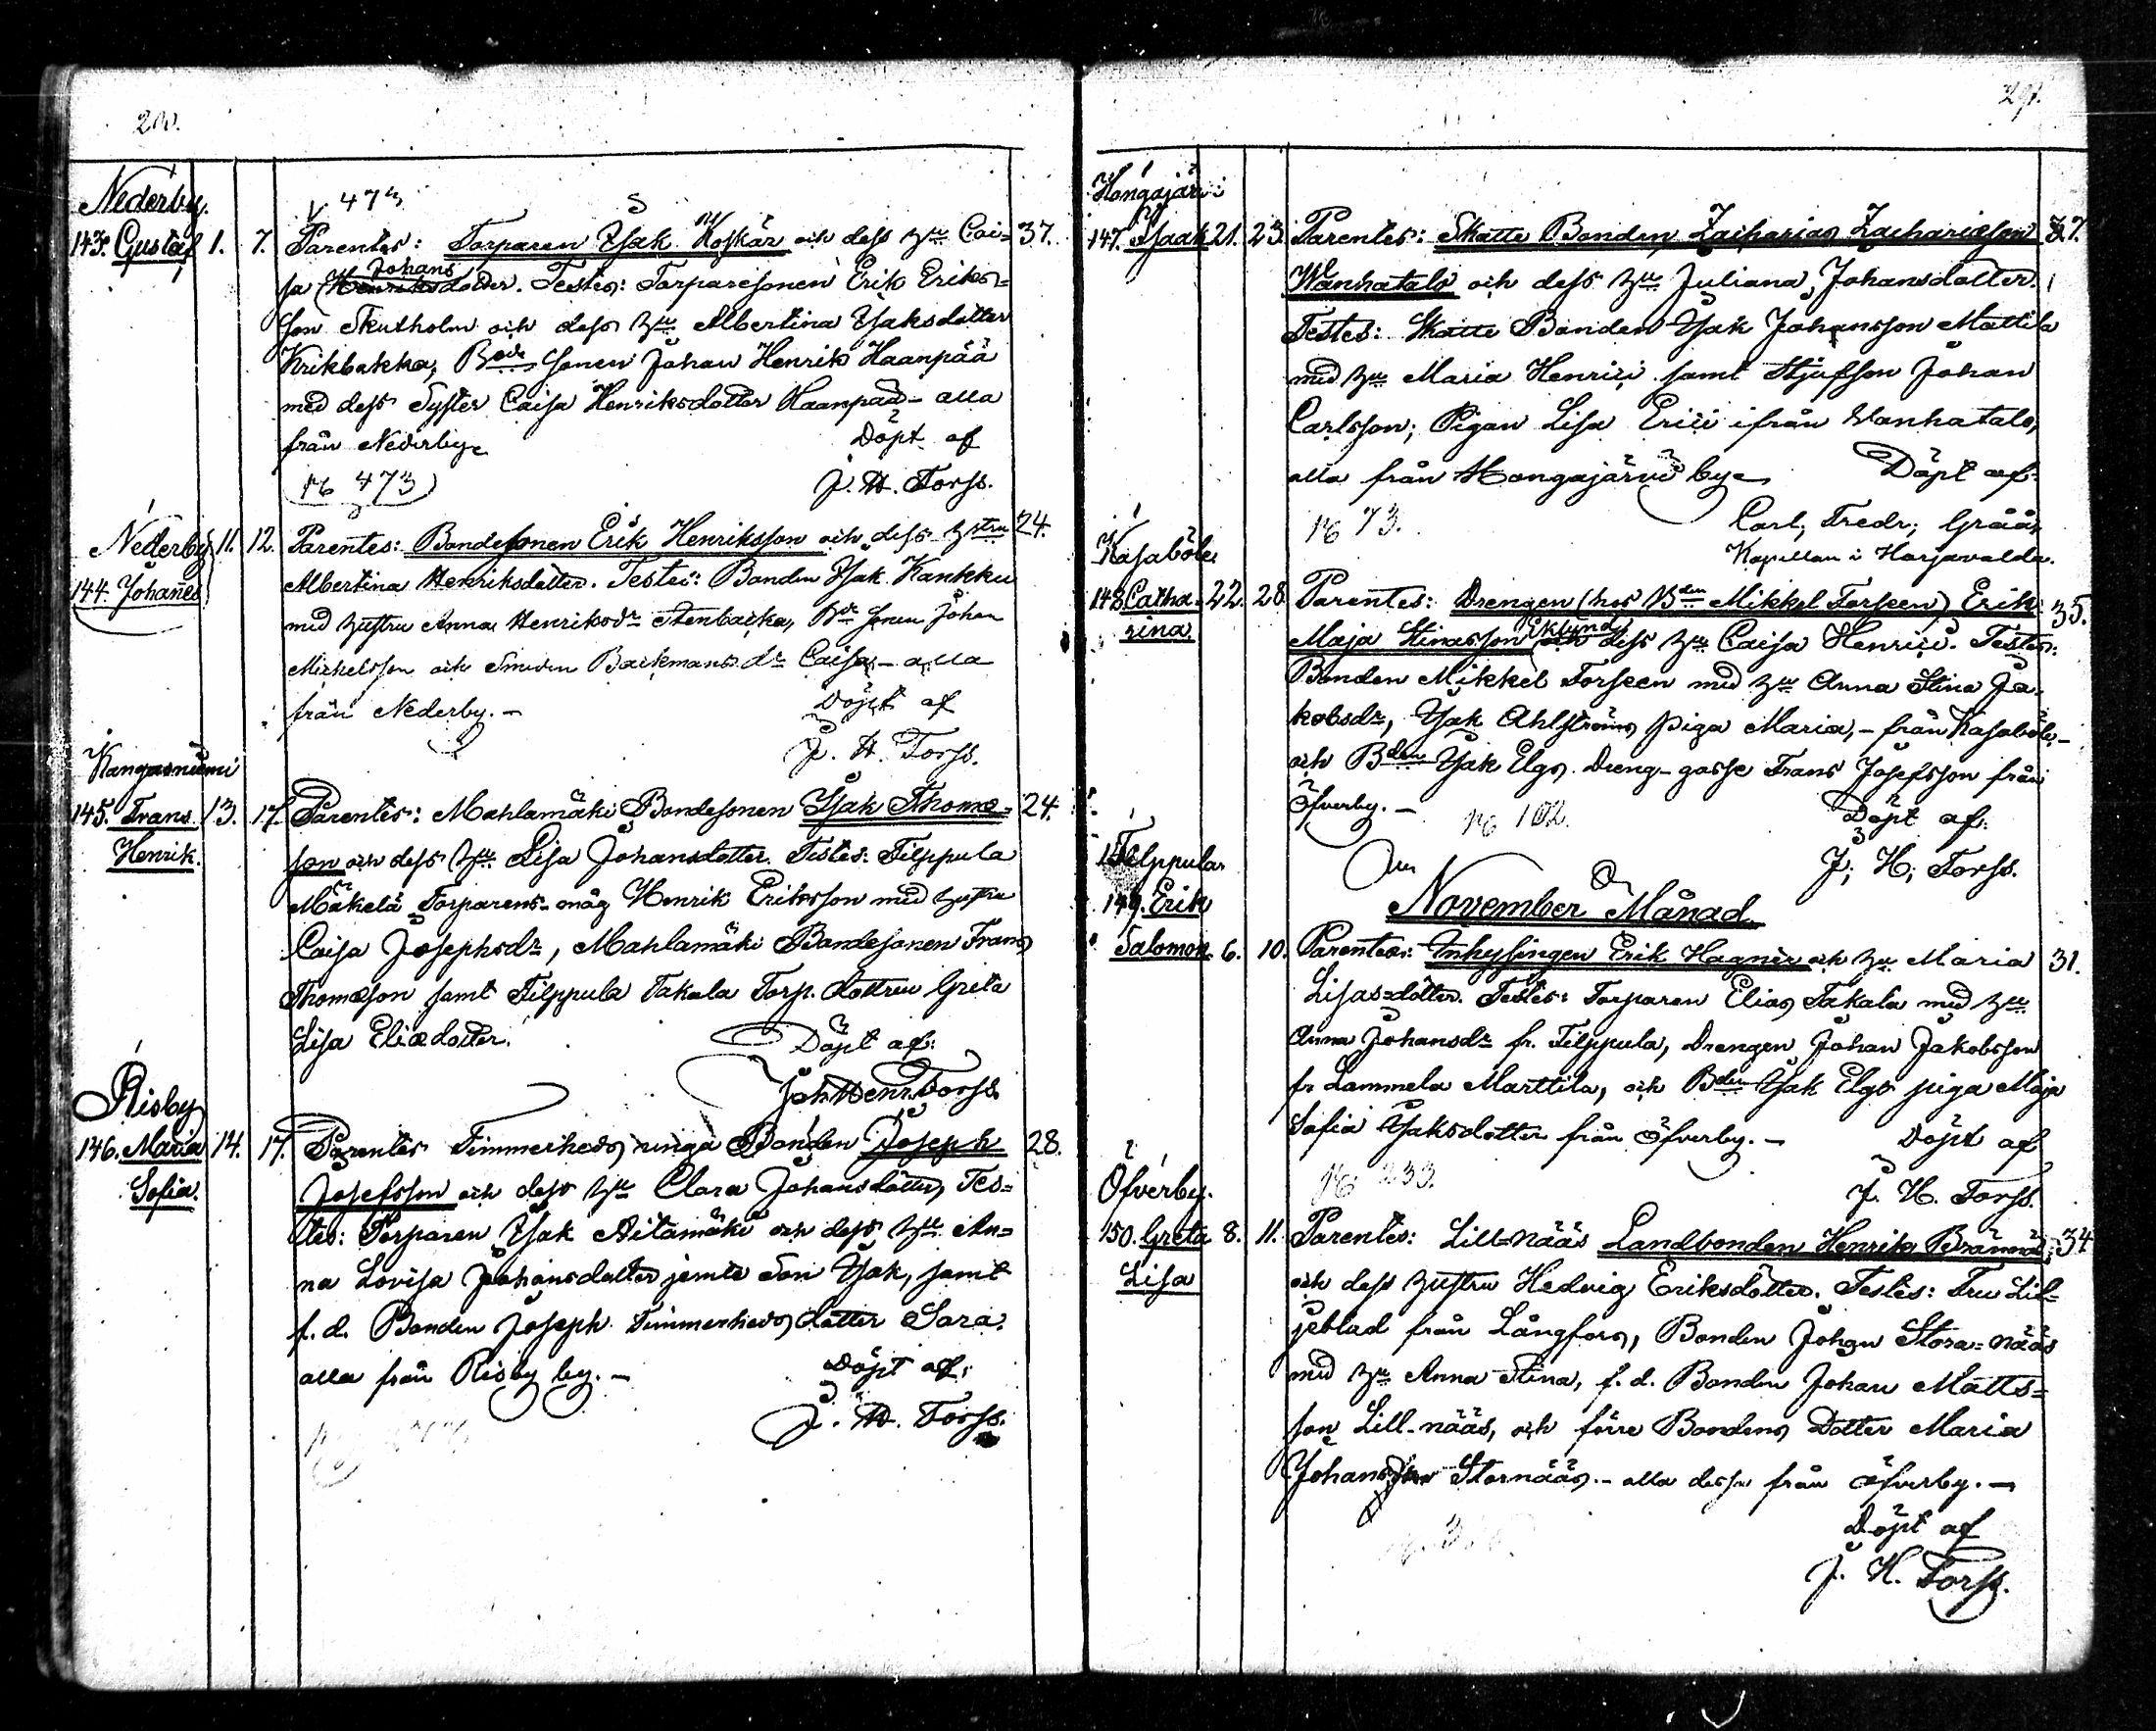 200.
Nederby.
473
143. Gustaf 1. 7. Parentes: Torparen Isak Koskär och dess hu Cai= 37.
sa Henriksdotter. Johans Testes: Torparesonen Erik Eriks=
son Skutholm och dess hu Albertina Isaksdotter
Krikbakka, Bode Sonen Johan Henrik Haanpää
med dess Syster Caisa Henriksdotter Haanpää - alla
från Nederby. Döpt af
16 473 J. H. Forss.
Nederby 11. 12. Parentes: Bondesonen Erik Henriksson och dess hstru 24.
144. Johannes Albertina Henriksdotter. Testes: Bonden Isak Kankku
med hustru Anna Henriksdr Stenbacka, Bde Sonen Johan
Michelsson och Smeden Backmans dr Caisa - alla
från Nederby. - Döpt af
J. H. Forss.
Kangasniemi
145. Frans 13. 17. Parentes: Mahlamäki Bondesonen Isak Thomæ= 24.
Henrik. son och dess hu Lisa Johansdotter. Testes: Filppula
Mäkelä Torparens-måg Henrik Eriksson med hustru
Caisa Josephsdr, Mahlamäki Bondesonen Frans
Thomæson samt Filppula Takala Torp. dottren Greta
Lisa Eliædotter. Döpt af:
Joh. Henr. Forss.
Risby
146. Maria 14. 17. Parentes Timmerheds unga Bonden Joseph 28.
Sofia. Josefsson och dess hu Clara Johansdotter, Tes=
tes: Torparen Isak Aitamäki och dess hu An=
na Lovisa Johansdotter jemte Son Isak, samt
f. d. Bonden Joseph Timmerheds dotter Sara.
alla från Risby by. - Döpt af:
J. H. Forss.
297.
Hongajärvi
147. Isaak 21. 23. Parentes: Skatte Bonden Zacharias Zachariæson 27.
Wanhatalo och dess hu Juliana Johansdotter.
Testes: Skatte Bonden Isak Johansson Mattila
med hu Maria Henrici samt Stjufson Johan
Carlsson; Pigan Lisa Erici ifrån Wanhatalo,
alla från Hongajärvi by. Döpt af:
16 73. Carl, Fredr; Gråås,
Kapellan i Harjavalda.
Kasaböle
148 Catha= 22. 28. Parentes: Drengen (hos Bden Mikkel Forseen) Erik 35.
rina Maja Stinasson Eklund och dess hu Caisa Henrici. Testes:
Bonden Mikkel Forseen med hu Anna Stina Ja=
kobsdr, Isak Ahlströms piga Maria, - från Kasaböle, -
och Bden Isak Elgs Dreng-gosse Frans Josefsson från
Öfverby. - 16 102. Döpt af:
J; H; Forss.
November Månad.
Filppula
149. Erik
Salomon. 6. 10. Parentes: Inhysingen Erik Hagner och hu Maria 31.
Lisas=dotter. Testes: Torparen Elias Takala med hu
Anna Johansdr fr. Filppula, Drengen Johan Jakobsson
fr Lammela Marttila, och Bden Isak Elgs piga Maja
Sofia Isaksdotter från Öfverby. - Döpt af
16 233. J. H. Forss.
Öfverby.
150. Greta 8. 11. Parentes: Lill=nääs Landbonden Henrik Brännäs 34
Lisa och dess hustru Hedvig Eriksdotter. Testes: Fru Lil=
jeblad från Långfors, Bonden Johan Stora=nääs
med hu Anna Stina, f. d. Bonden Johan Matts=
son Lill-nääs, och förre Bondens Dotter Maria
Johansdr Stornääs. - alla dessa från Öfverby. -
Döpt af
J. H. Forss.